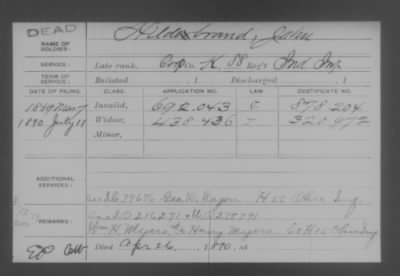 DEAD
NAME OF SOLDIER: Hildebrand, John
SERVICE: Late rank, Corp Co. K, 88 Reg't Ind Inf
TERM OF SERVICE: Enlisted , 1 Discharged , 1
DATE OF FILING. CLASS. APPLICATION NO. LAW. CERTIFICATE NO.
1889 May Invalid, 692.043 C. 878.204
1890 July 11 Widow, 438.436 J 320.972
Minor,
ADDITIONAL SERVICES:
79676 Geo. W. Ragon H 55 Ohio Inf
REMARKS: 216271 275791
Wm H. Meyers Henry Meyers H 15 Ohio Inf
Died Apr 26, 1890,